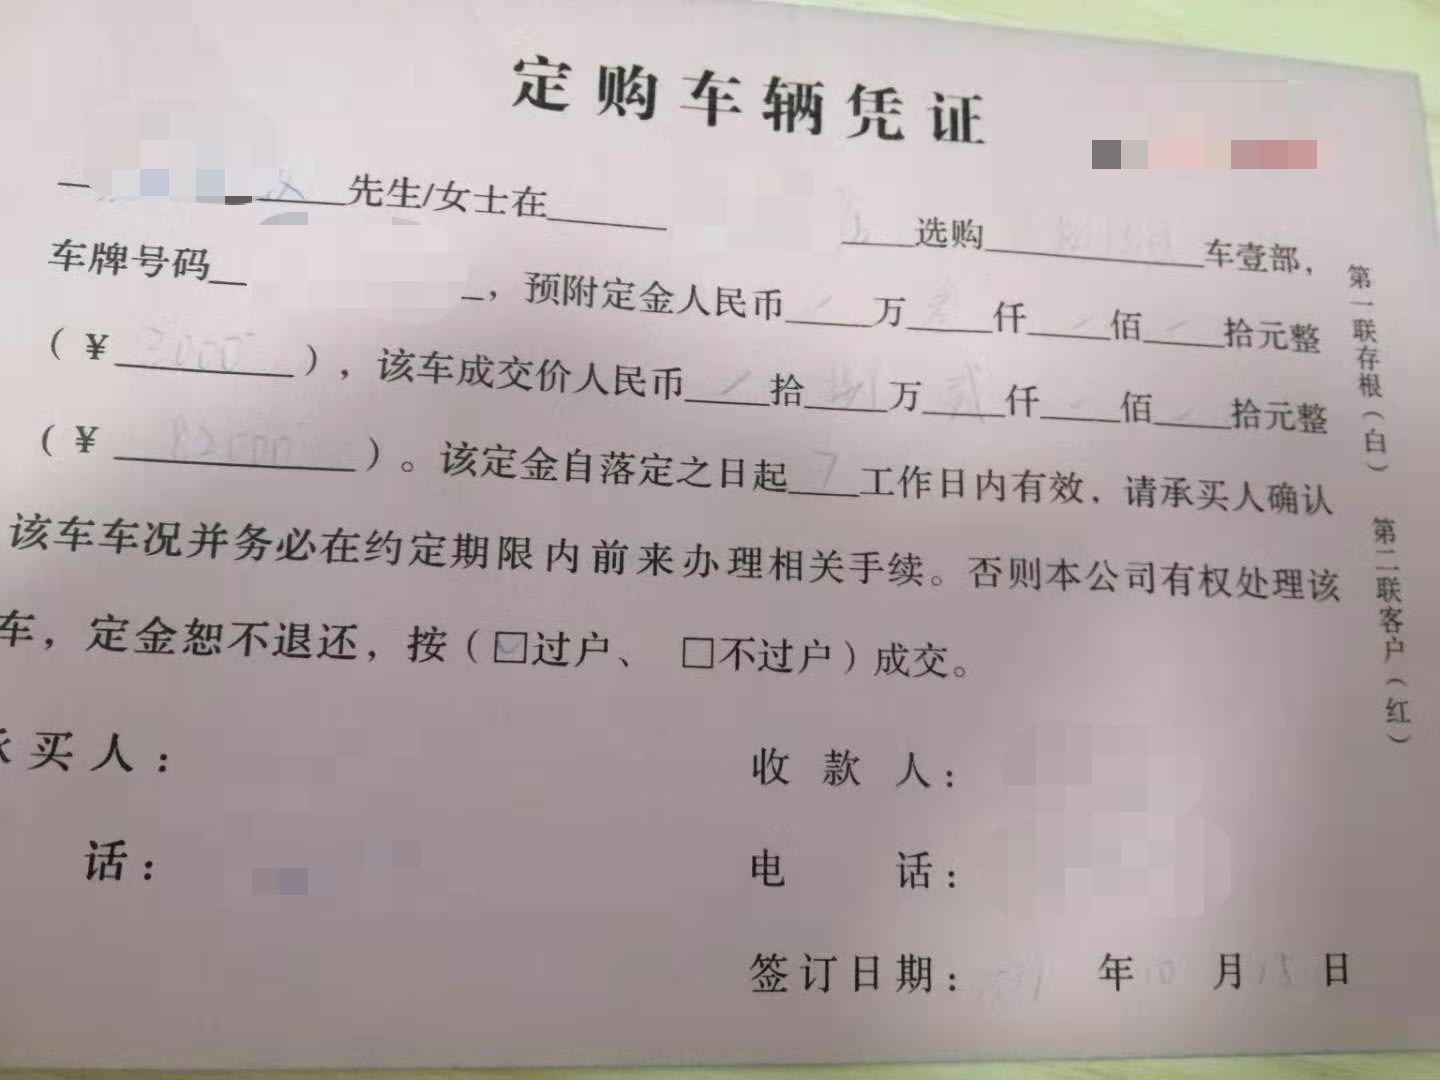 定购车辆凭证
先生/女士在 选购 车壹部，
车牌号码 ，预附定金人民币 / 万 叁 仟 / 佰 / 拾元整
（￥ 3000 ），该车成交价人民币 / 拾 捌 万 贰 仟 / 佰 / 拾元整
（￥ 82000 ）。该定金自落定之日起 7 工作日内有效，请承买人确认
该车车况并务必在约定期限内前来办理相关手续。否则本公司有权处理该
车，定金恕不退还，按（☑过户、 □不过户）成交。
承买人： 收款人：
话： 电话：
签订日期： 年 10 月 15 日
第一联存根（白） 第二联客户（红）